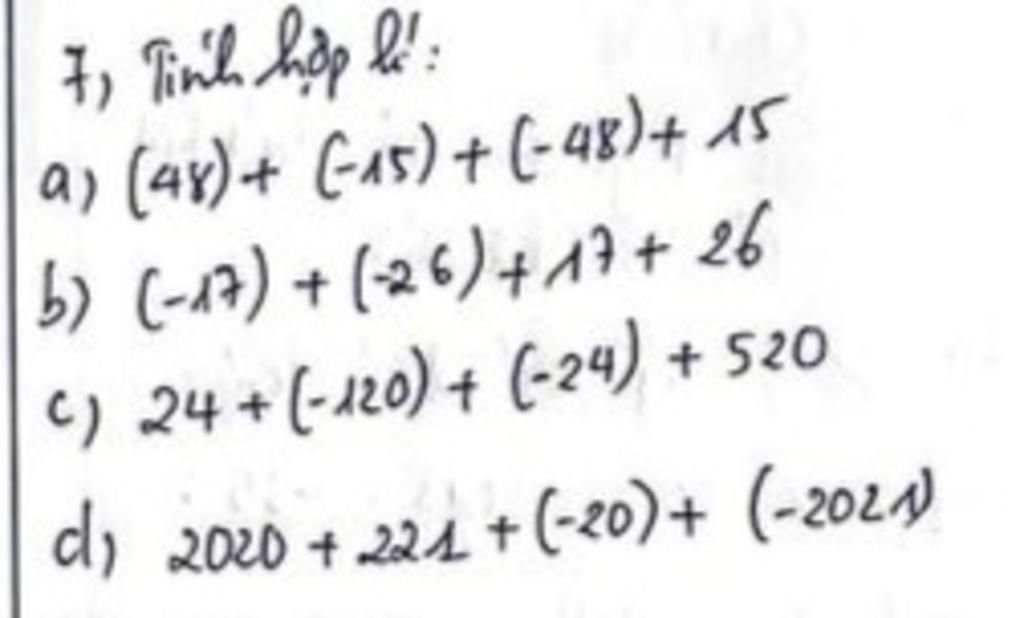 7, Tính hợp lí:
a) (48) + (-15) + (-48) + 15
b) (-17) + (-26) + 17 + 26
c) 24 + (-120) + (-24) + 520
d) 2020 + 221 + (-20) + (-2021)